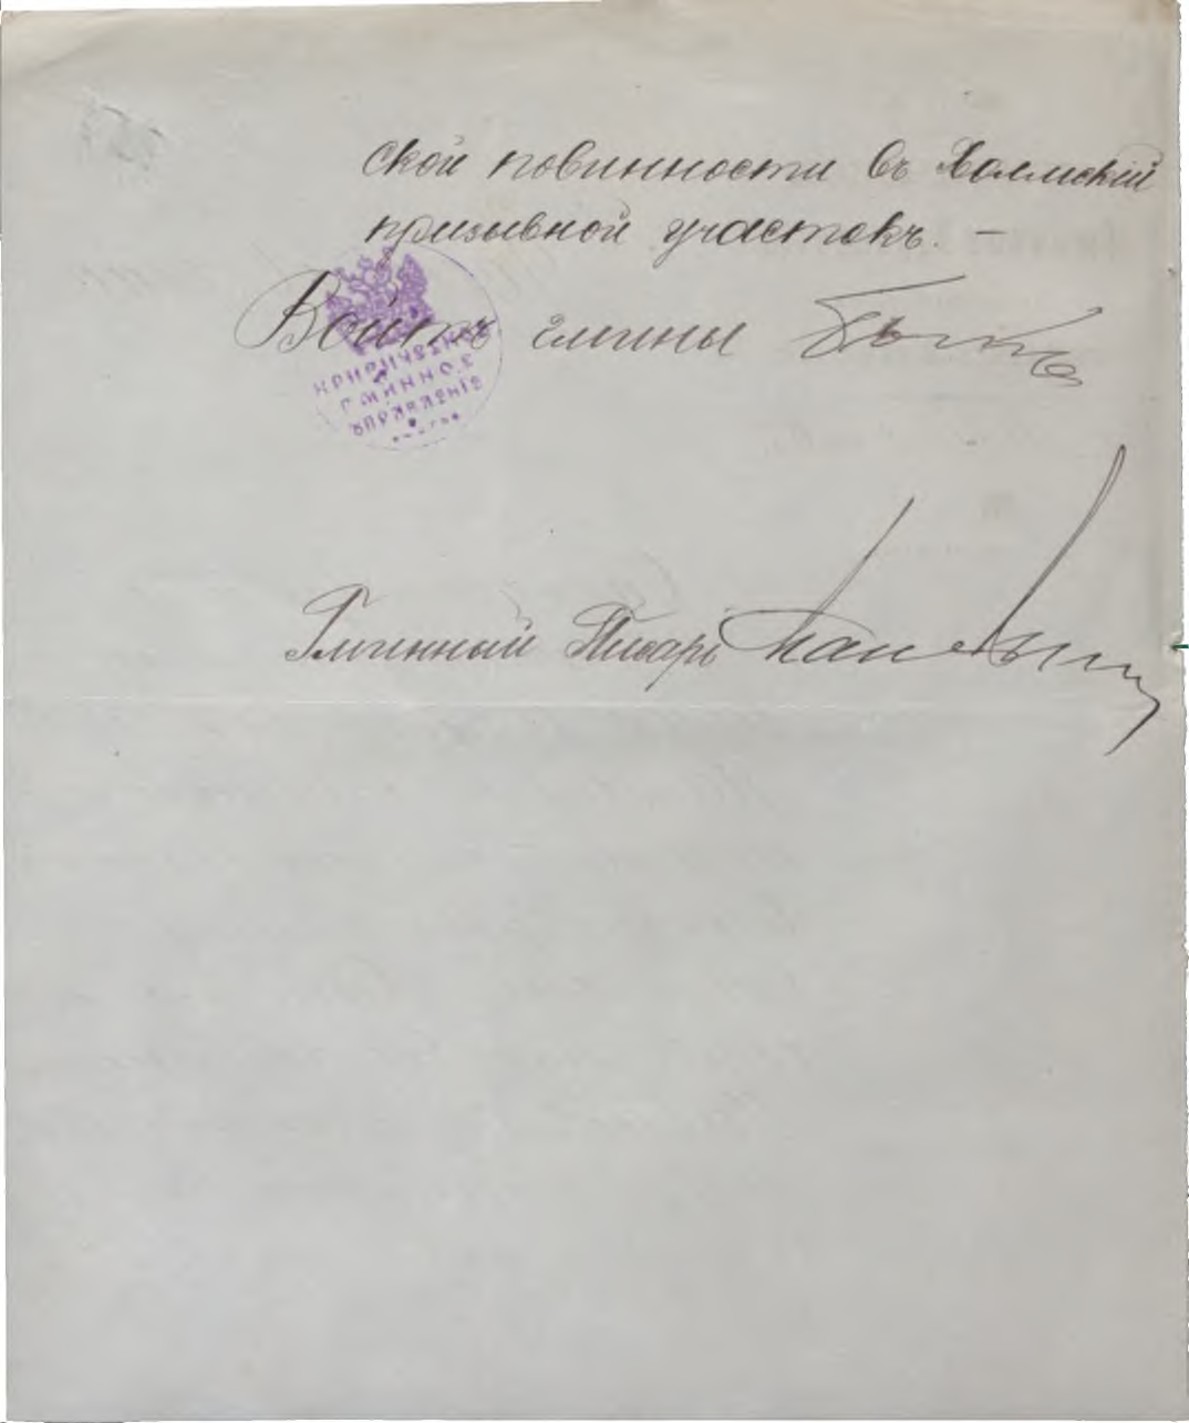 ской повинности въ Холмскій
призывной участокъ. —
Войтъ гмины
КРИВИЧСКОЕ
ГМИННОЕ
УПРАВЛЕНІЕ
Гминный Писарь